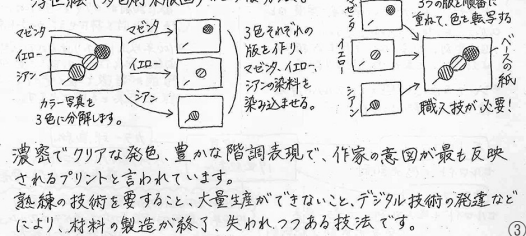 マゼンタ
イエロー
シアン
カラー写真を
3色に分解します。
マゼンタ
イエロー
シアン
3色それぞれの
版を作り、
マゼンタ、イエロー、
シアンの染料を
染み込ませる。
イエロー
シアン
重ねて、色を転写する
ベースの紙
職人技が必要！
濃密でクリアな発色、豊かな階調表現で、作家の意図が最も反映
されるプリントと言われています。
熟練の技術を要すること、大量生産ができないこと、デジタル技術の発達など
により、材料の製造が終了、失われつつある技法です。
③